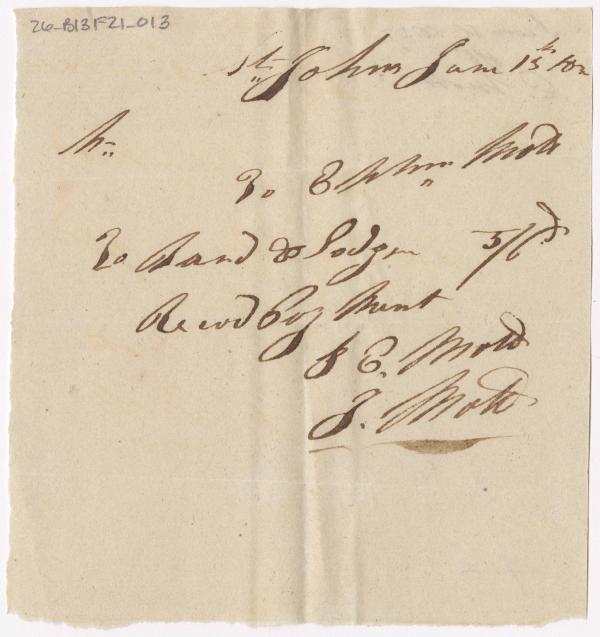 26-B13F21-013
St Johns June 15th 180
Mr
To E Mott
To Board & Lodgen 5/6d
Recvd Pay Ment
E. Mott
J. Mott